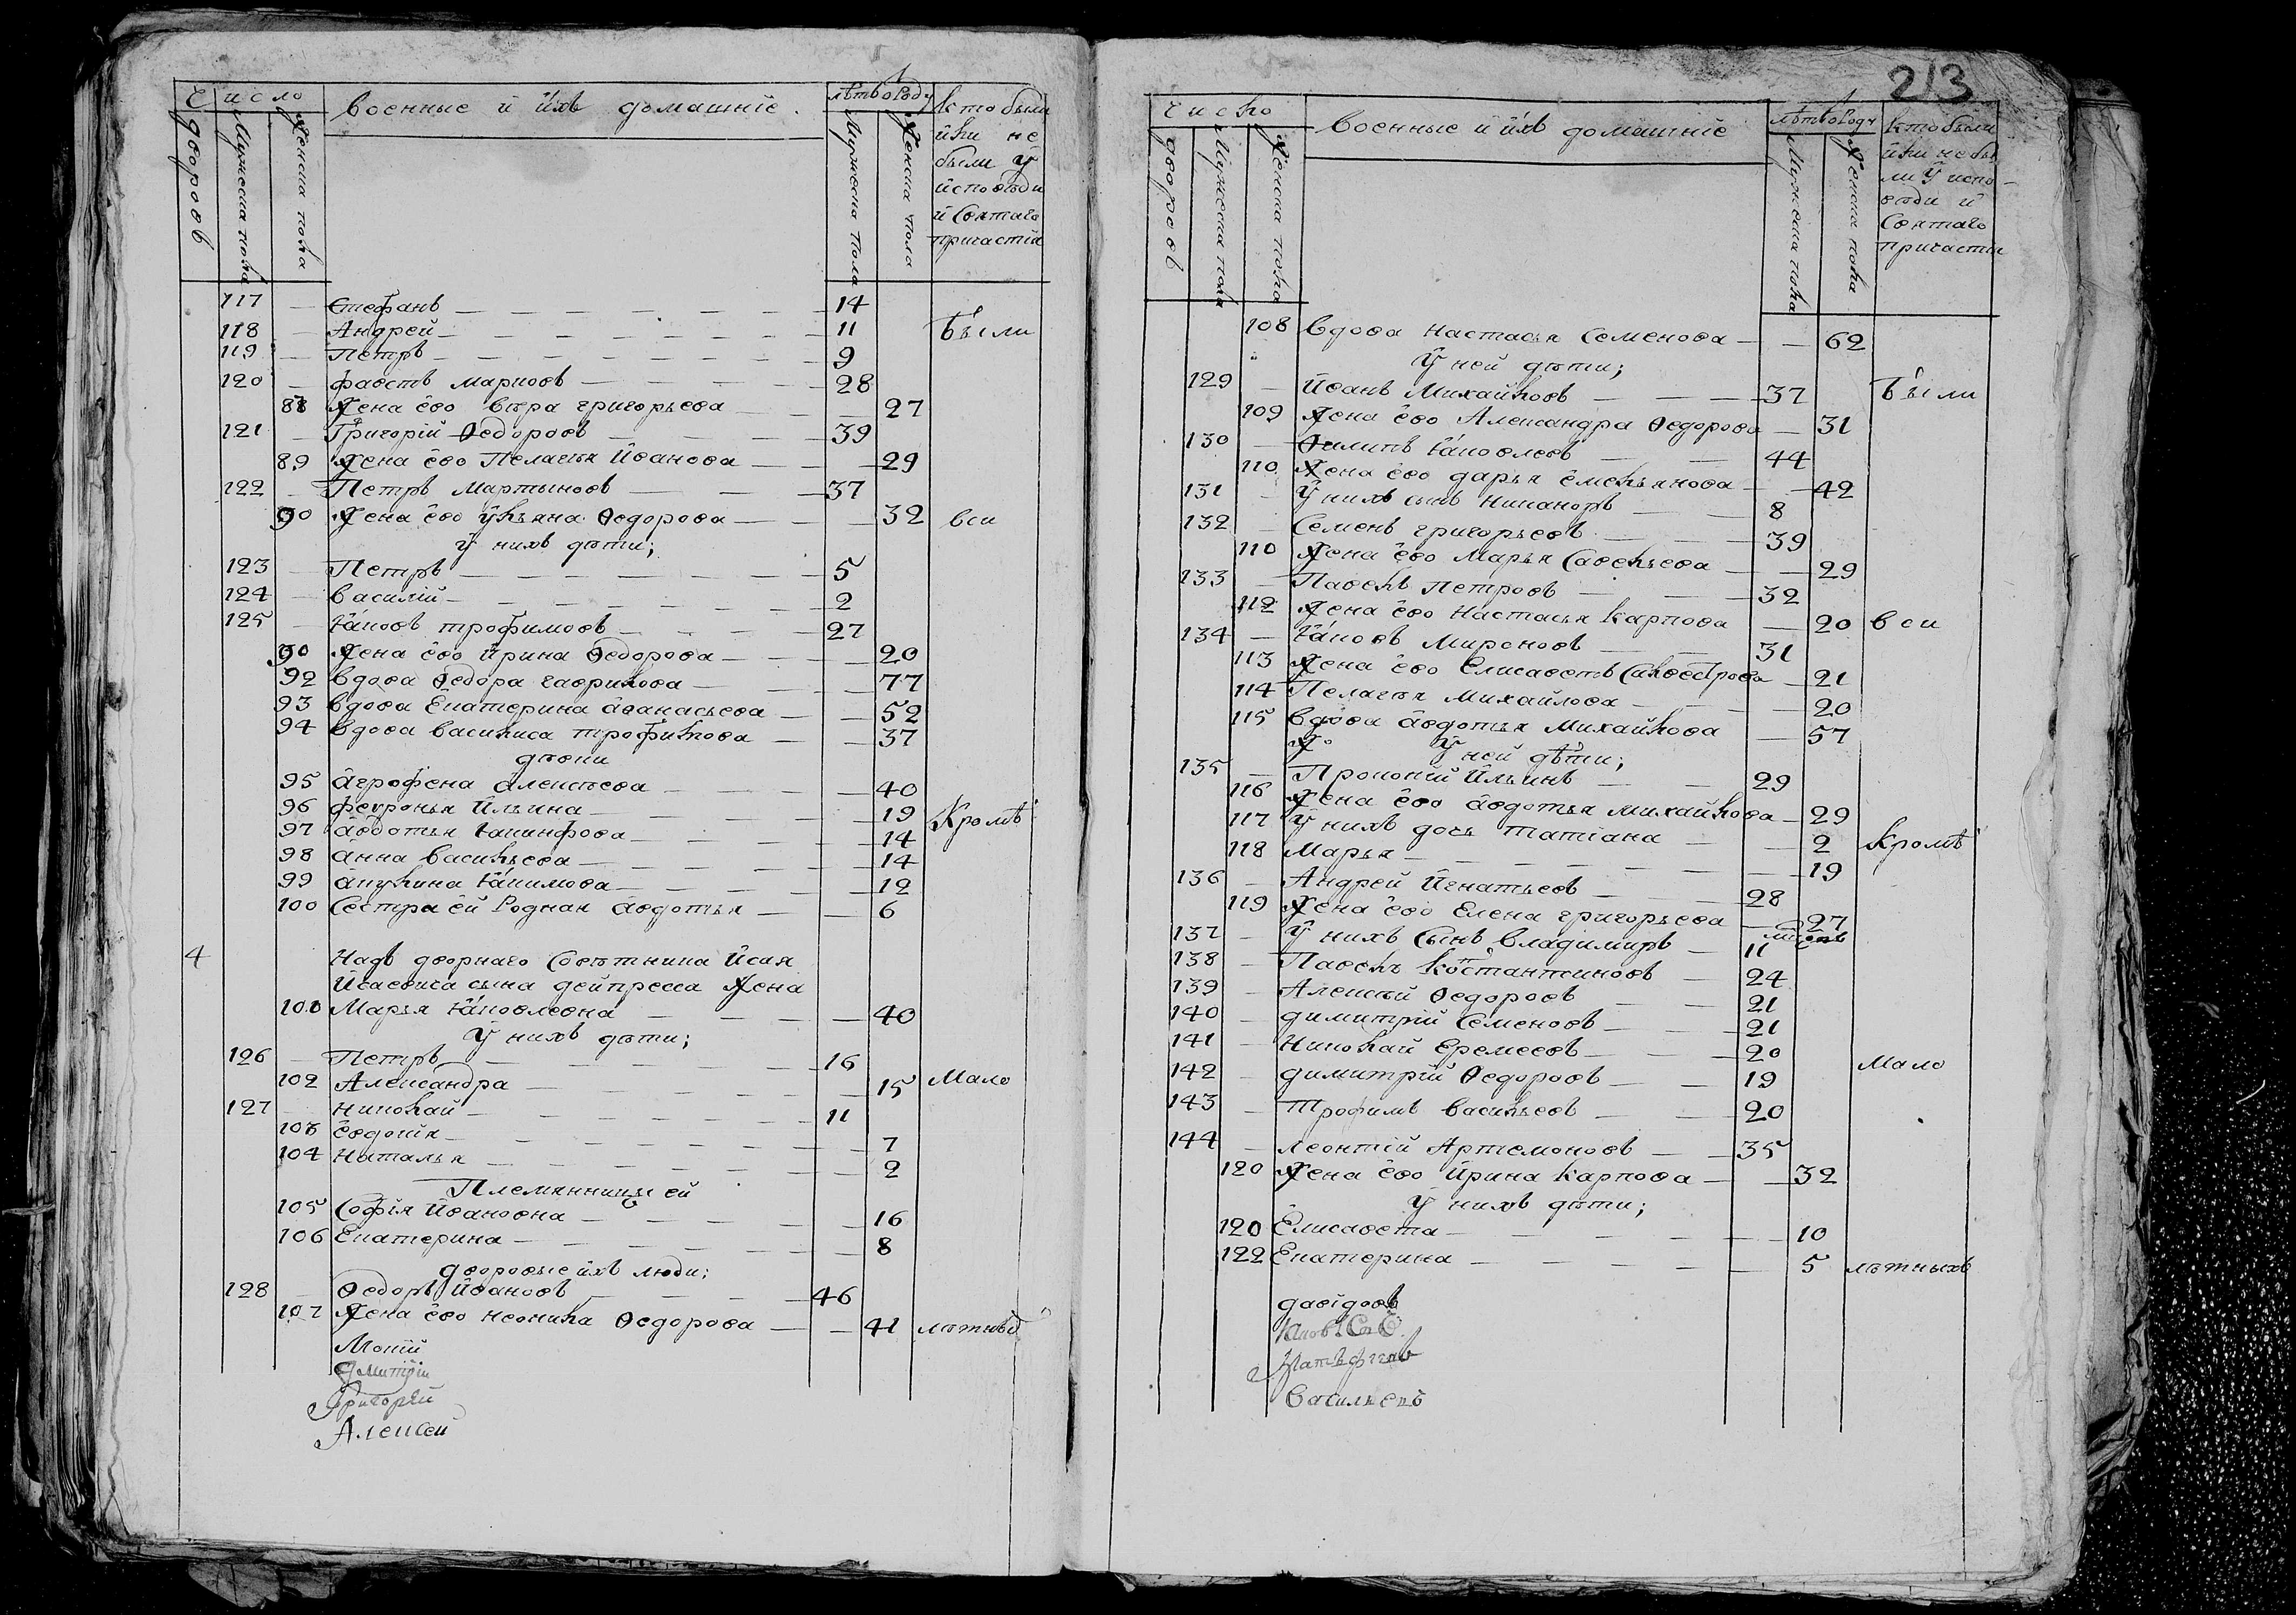 Число
дворовъ
Мужеска пола
Женска пола
военные и ихъ домашніе.
лѣтъ о роду
Мужеска пола
Женска пола
кто были
или не
были у
исповѣди
и Святаго
причастія
117 — Стефанъ — 14
118 — Андрей — 11 были
119 — Петръ — 9
120 — фавстъ Марковъ — 28
88 Жена ево вѣра григорьева — 27
121 — Григорій Ѳедоровъ — 39
89 Жена ево Пелагея Иванова — 29
122 — Петръ Мартыновъ — 37
90 Жена ево ульяна Ѳедорова — 32 вси
у нихъ дѣти;
123 — Петръ — 5
124 — василій — 2
125 — Яковъ трофимовъ — 27
90 Жена ево ирина Ѳедорова — 20
92 вдова Ѳедора гаврилова — 77
93 вдова Екатерина аѳанасьева — 52
94 вдова василиса трофилова — 37
дѣвки
95 агрофена алексѣева — 40
96 февронья Ильина — 19 Кромѣ
97 авдотья Іакинфова — 14
98 анна васильева — 14
99 акулина Іакимова — 12
100 Сестра ей Родная авдотья — 6
4 Надъ дворнаго Совѣтника Исая
Исаевича сына дейпресса Жена
100 Марья Яковлевна — 40
у нихъ дѣти;
126 — Петръ — 16
102 Александра — 15 Мало
127 — Николай — 11
103 евдокія — 7
104 Наталья — 2
Племянницы ей
105 Софія Ивановна — 16
106 Екатерина — 8
дворовые ихъ люди;
128 — Ѳедоръ Ивановъ — 46
107 Жена ево неонила Ѳедорова — 41 лѣтныхъ
Мокій
Дмитрій
Григорей
Алексей
213
Число
дворовъ
Мужеска пола
Женска пола
военные и ихъ домашніе
лѣтъ о роду
Мужеска пола
Женска пола
кто были
или небы
ли у испо-
вѣди и
Святаго
причастія
108 вдова настасья Семенова — 62
у ней дѣти;
129 — Иванъ Михайловъ — 37 были
109 Жена ево Александра Ѳедорова — 31
130 — Ѳилипъ Яковлевъ — 44
110 Жена ево дарья емельянова — 42
131 — у нихъ сынъ никаноръ — 8
132 — Семенъ григорьевъ — 39
110 Жена ево Марья Савельева — 29
133 — Павелъ петровъ — 32
112 Жена ево Настасья карпова — 20 вси
134 — Яковъ Мироновъ — 31
113 Жена ево Елисаветъ Силвестрова — 21
114 Пелагея михайлова — 20
115 вдова авдотья Михайлова — 57
у ней дѣти;
135 — Прокопій Ильинъ — 29
116 Жена ево авдотья михайлова — 29
117 у нихъ дочь татіана — 2 кромѣ
118 Марья — 19
136 — Андрей Игнатьевъ — 28
119 Жена ево Елена григорьева — 27
137 — у нихъ Сынъ владимиръ — 11
138 — Павелъ костантиновъ — 24
139 — Алексѣй Ѳедоровъ — 21
140 — димитрій Семеновъ — 21
141 — николай Еремеевъ — 20
142 — димитрій Ѳедоровъ — 19 мало
143 — трофимъ васильевъ — 20
144 — леонтій Артемоновъ — 35
120 Жена ево ирина карпова — 32
у нихъ дѣти;
120 Елисавета — 10
122 Екатерина — 5 лѣтныхъ
давідовъ
васильевъ